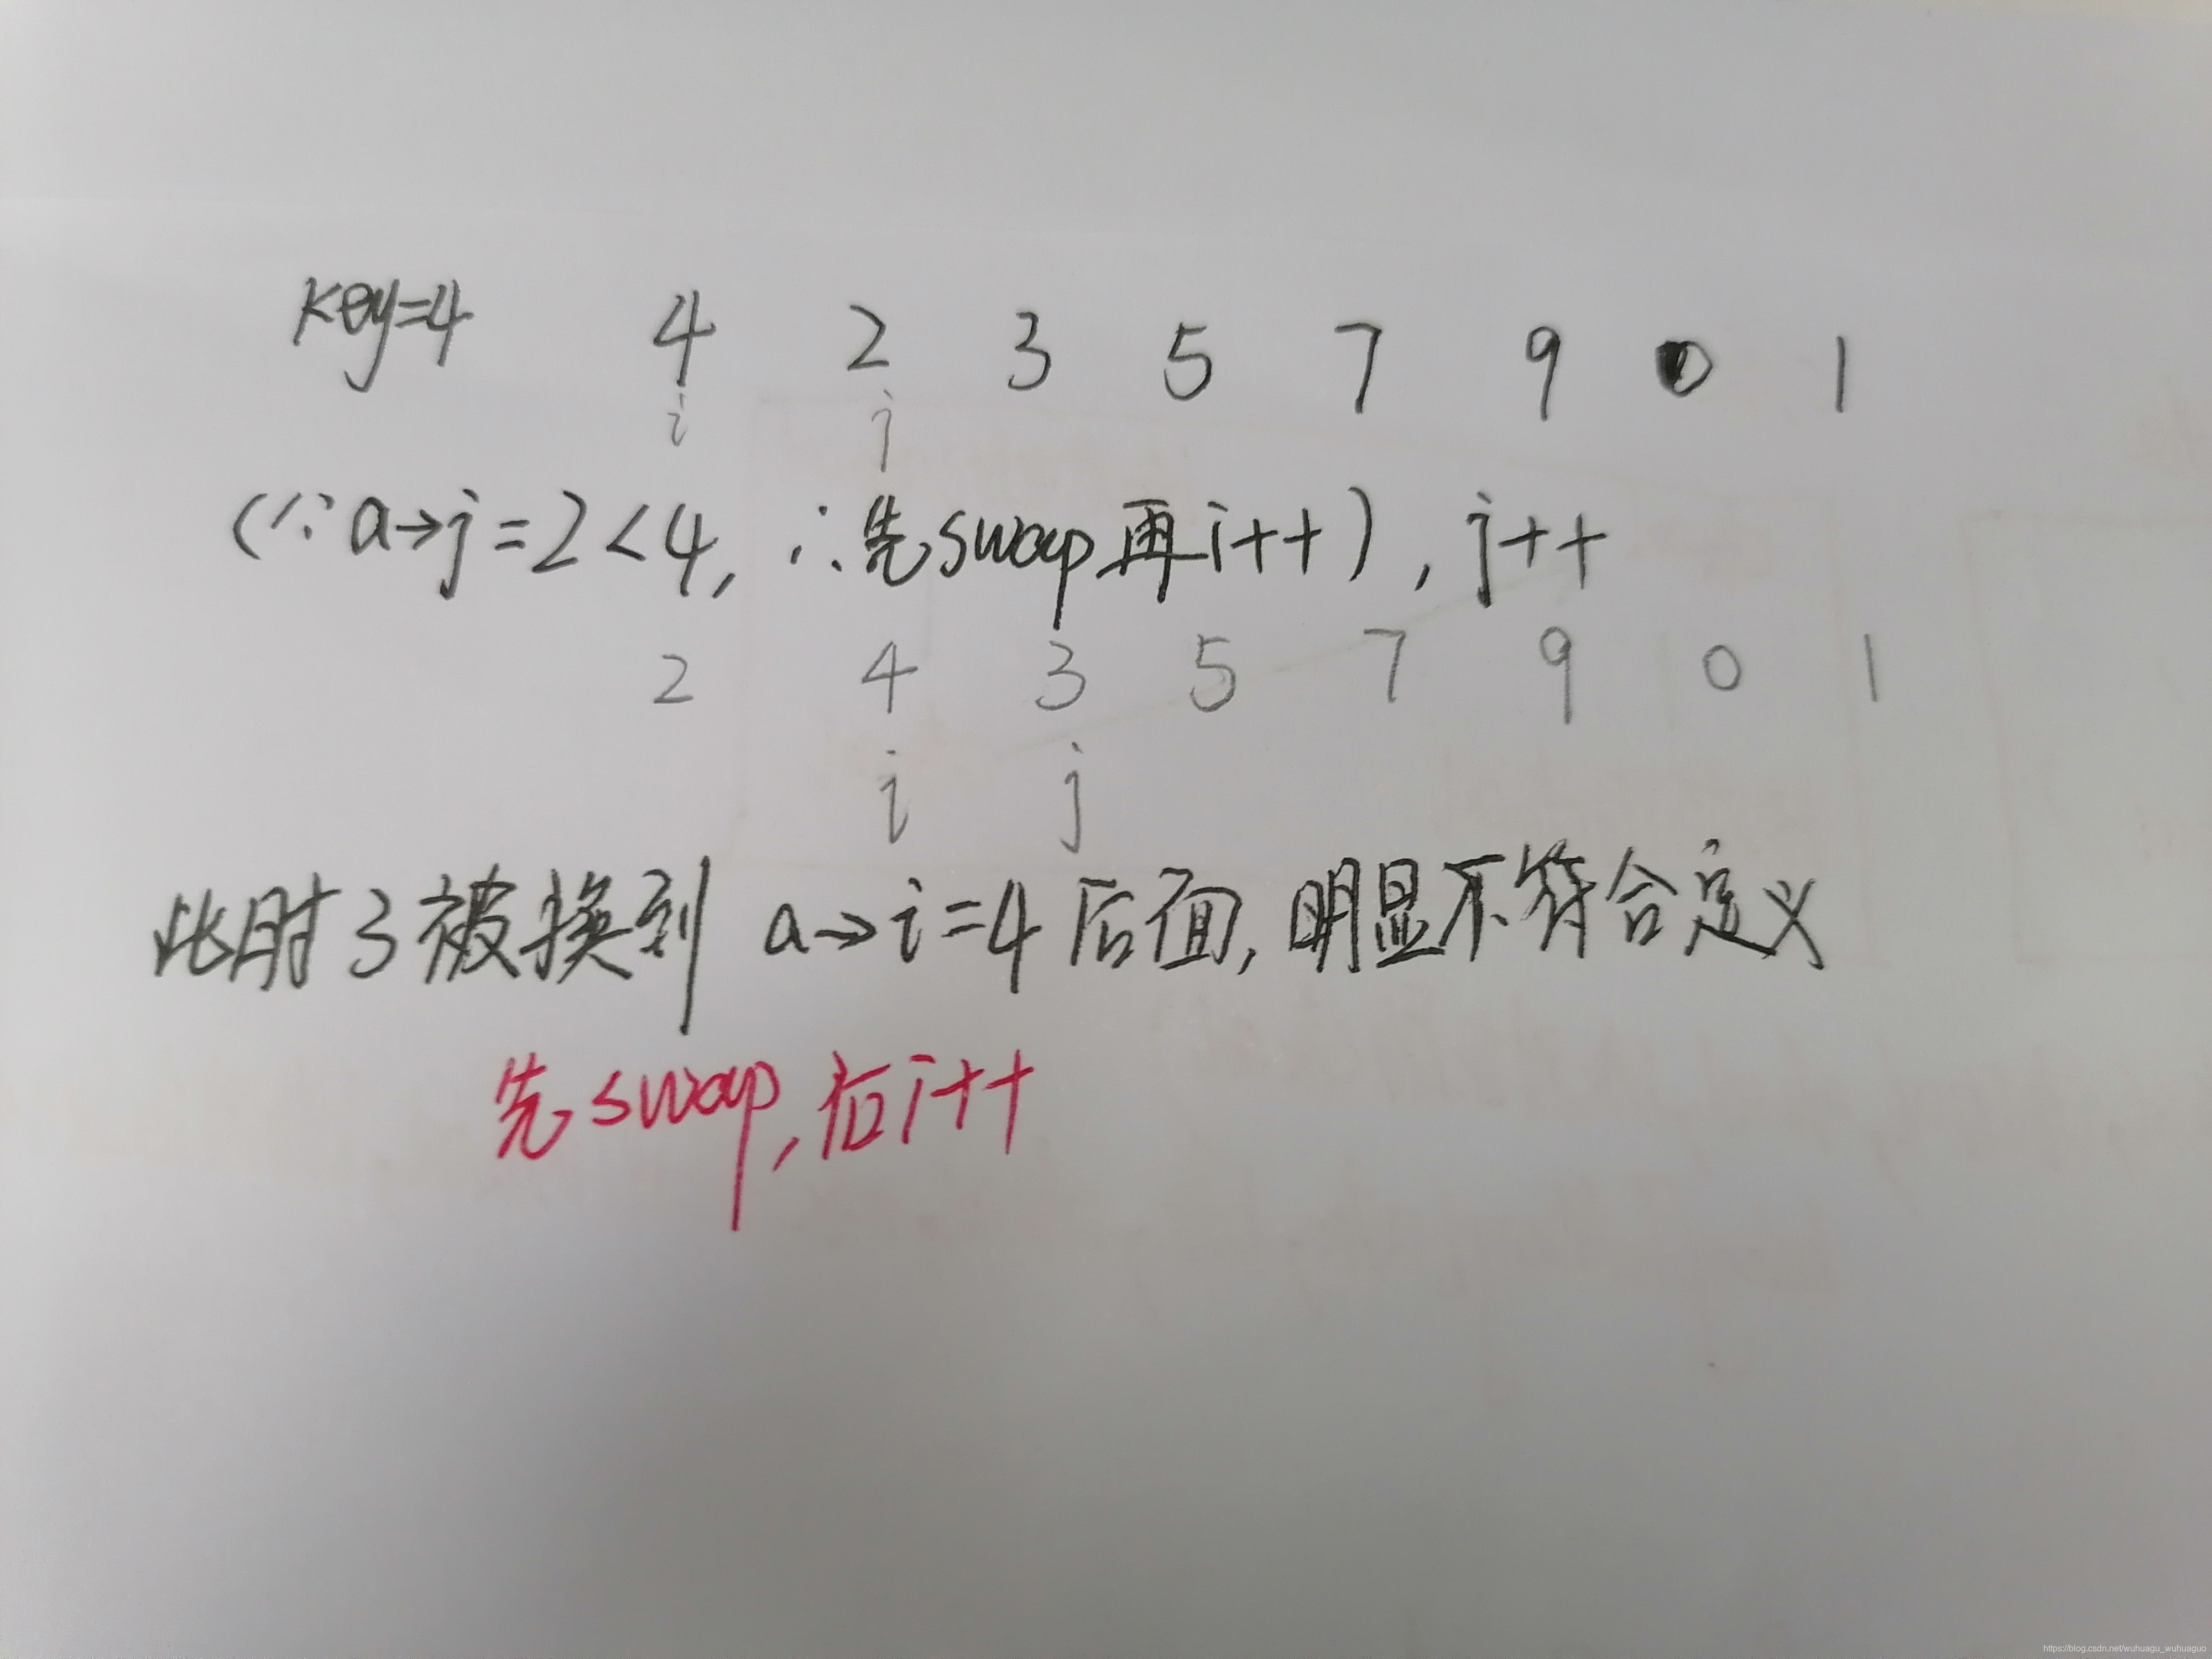 key=4 4 2 3 5 7 9 0 1
i j
(∵a→j=2<4, ∴先swap再i++), j++
2 4 3 5 7 9 0 1
i j
此时3被换到 a→i=4后面,明显不符合定义
先swap,后i++
https://blog.csdn.net/wuhuagu_wuhuaguo